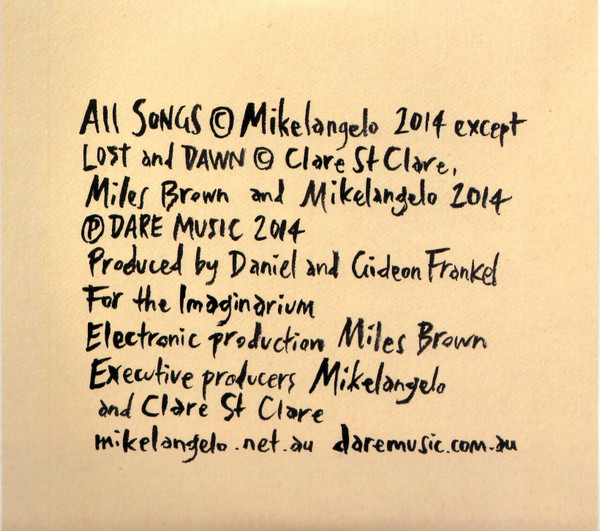 All SONGS © Mikelangelo 2014 except
LOST and DAWN © Clare St Clare,
Miles Brown and Mikelangelo 2014
℗ DARE MUSIC 2014
Produced by Daniel and Gideon Frankel
For the Imaginarium
Electronic production Miles Brown
Executive producers Mikelangelo
and Clare St Clare
mikelangelo.net.au daremusic.com.au